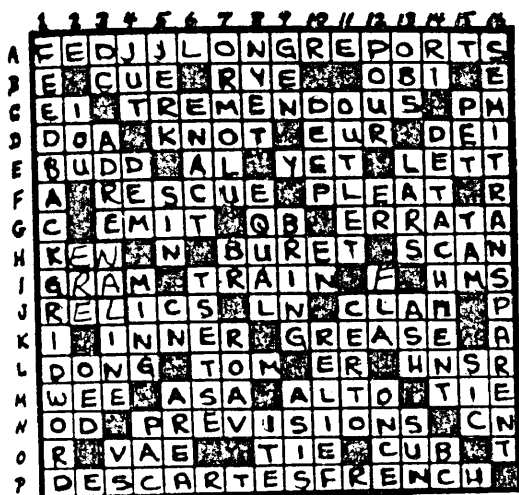 1 2 3 4 5 6 7 8 9 10 11 12 13 14 15 16
A F E D J J L O N G R E P O R T S
B E C U E R Y E O B I E
C E I T R E M E N D O U S P M
D D O A K N O T E U R D E I
E B U D D A L Y E T L E T T
F A R E S C U E P L E A T R
G C E M I T Q B E R R A T A
H K E N N B U R E T S C A N
I G R A M T R A I N F H M S
J R E L I C S L N C L A M P
K I I N N E R G R E A S E A
L D O N G T O M E R H N S R
M W E E A S A A L T O T I E
N O D P R E V I S I O N S C N
O R V A E T I E C U B T
P D E S C A R T E S F R E N C H